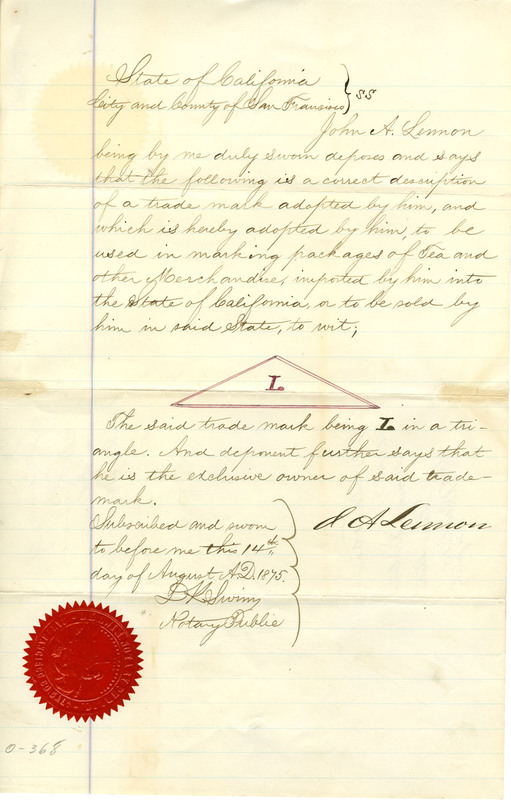 State of California
City and County of San Francisco } SS
John A. Lennon
being by me duly sworn deposes and says
that the following is a correct description
of a trade mark adopted by him, and
which is hereby adopted by him, to be
used in marking packages of Tea and
other Merchandise, imported by him into
the State of California, or to be sold by
him in said State, to wit;
L
The said trade mark being L in a tri-
angle. And deponent further says that
he is the exclusive owner of said trade-
mark.
J A Lennon
Subscribed and sworn
to before me this 14th
day of August A.D. 1875.
Notary Public
0-368